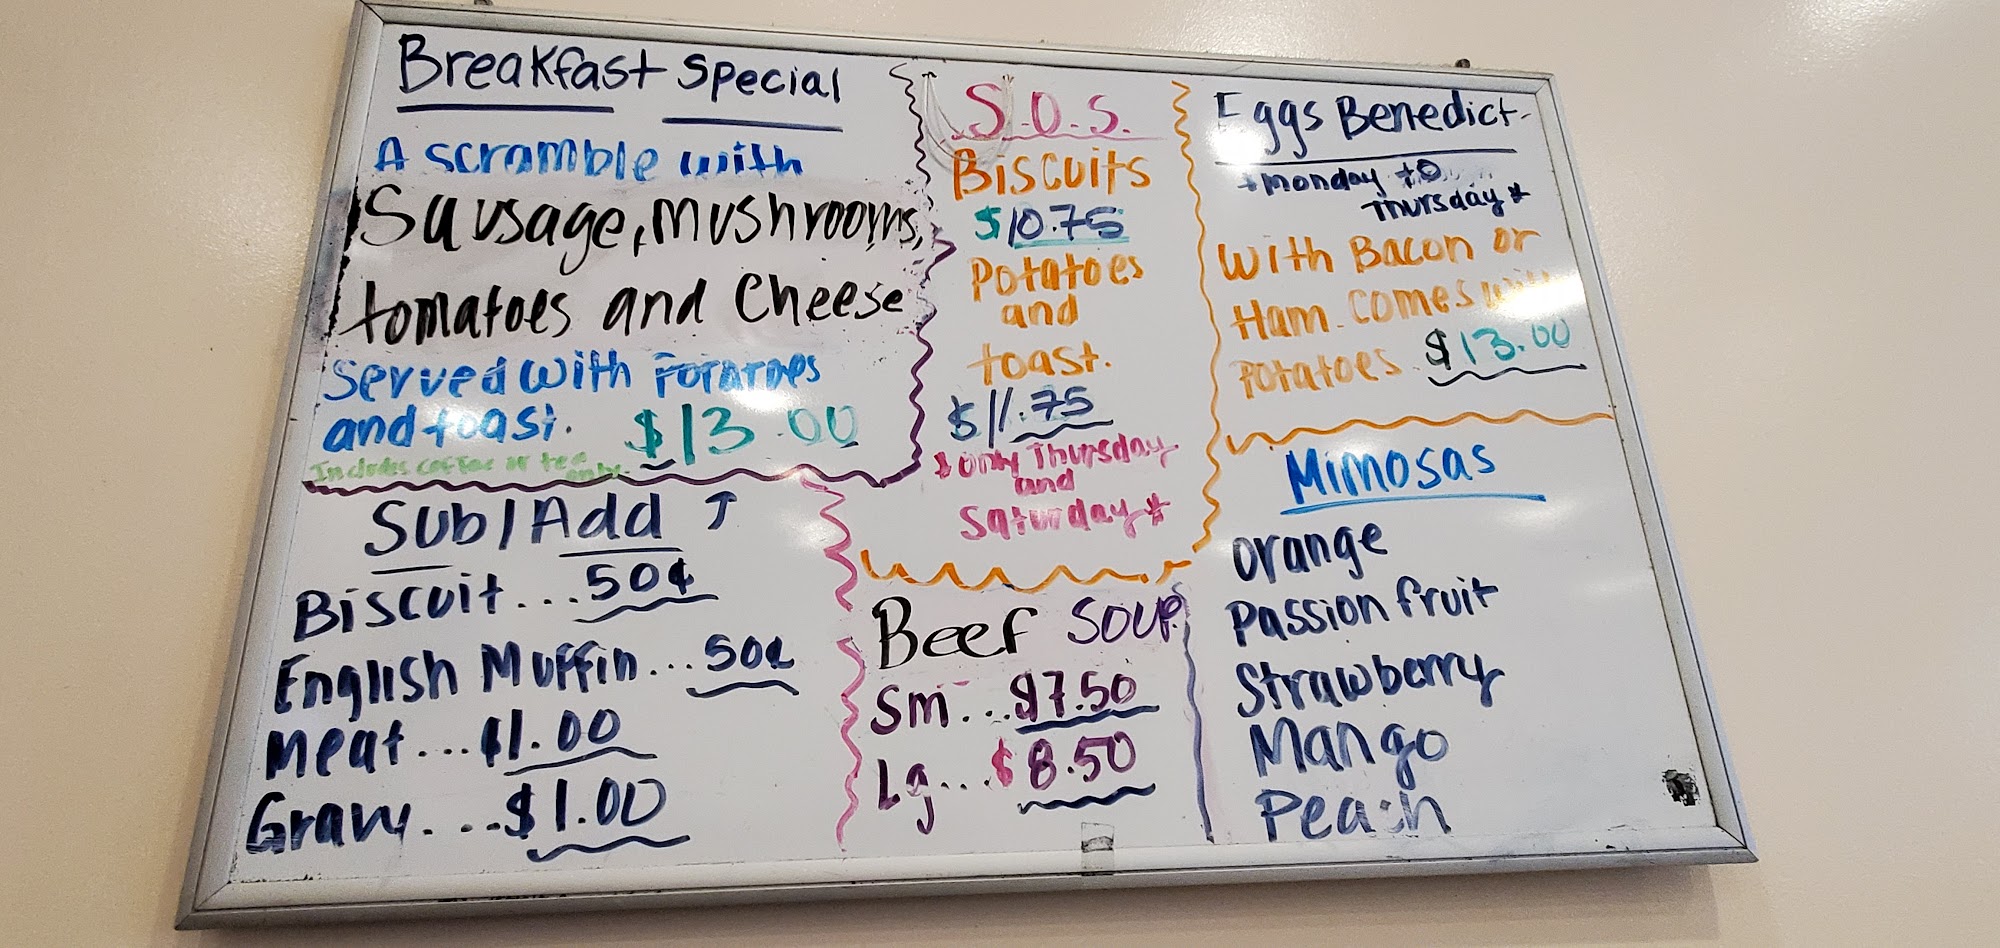 Breakfast Special
A scramble with
Sausage, mushrooms,
tomatoes and Cheese
Served with Potatoes
and toast. $13.00
Includes coffee or tea
only.
Sub/Add ↑
Biscuit...50¢
English Muffin...50¢
Meat...$1.00
Gravy....$1.00
S.O.S.
Biscuits
$10.75
Potatoes
and
toast.
$11.75
* Only Thursday
and
Saturday *
Beef SOUP
Sm...$7.50
Lg...$8.50
Eggs Benedict-
*Monday to
Thursday*
With Bacon or
Ham. Comes with
Potatoes. $13.00
Mimosas
Orange
Passion fruit
Strawberry
Mango
Peach